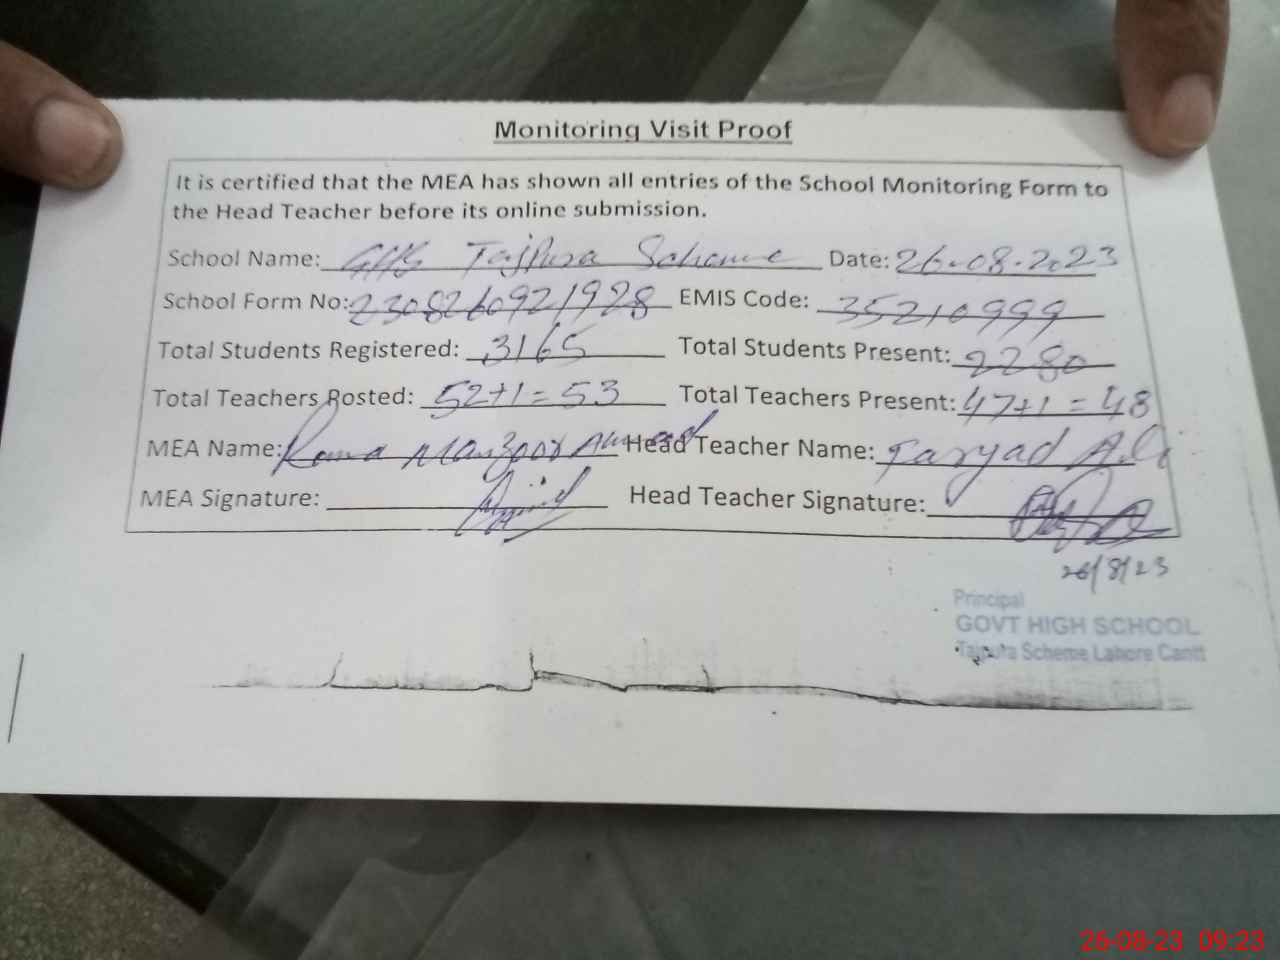 Monitoring Visit Proof
It is certified that the MEA has shown all entries of the School Monitoring Form to
the Head Teacher before its online submission.
School Name: GHS Tajpura Scheme Date: 26.08.2023
School Form No: 2308260921928 EMIS Code: 35210999
Total Students Registered: 3165 Total Students Present: 2280
Total Teachers Posted: 52+1=53 Total Teachers Present: 47+1=48
MEA Name: Rana Manzoor Ahmad Head Teacher Name: Faryad Ali
MEA Signature: Head Teacher Signature:
26/8/23
Principal
GOVT HIGH SCHOOL
Tajpura Scheme Lahore Cantt
26-08-23 09:23